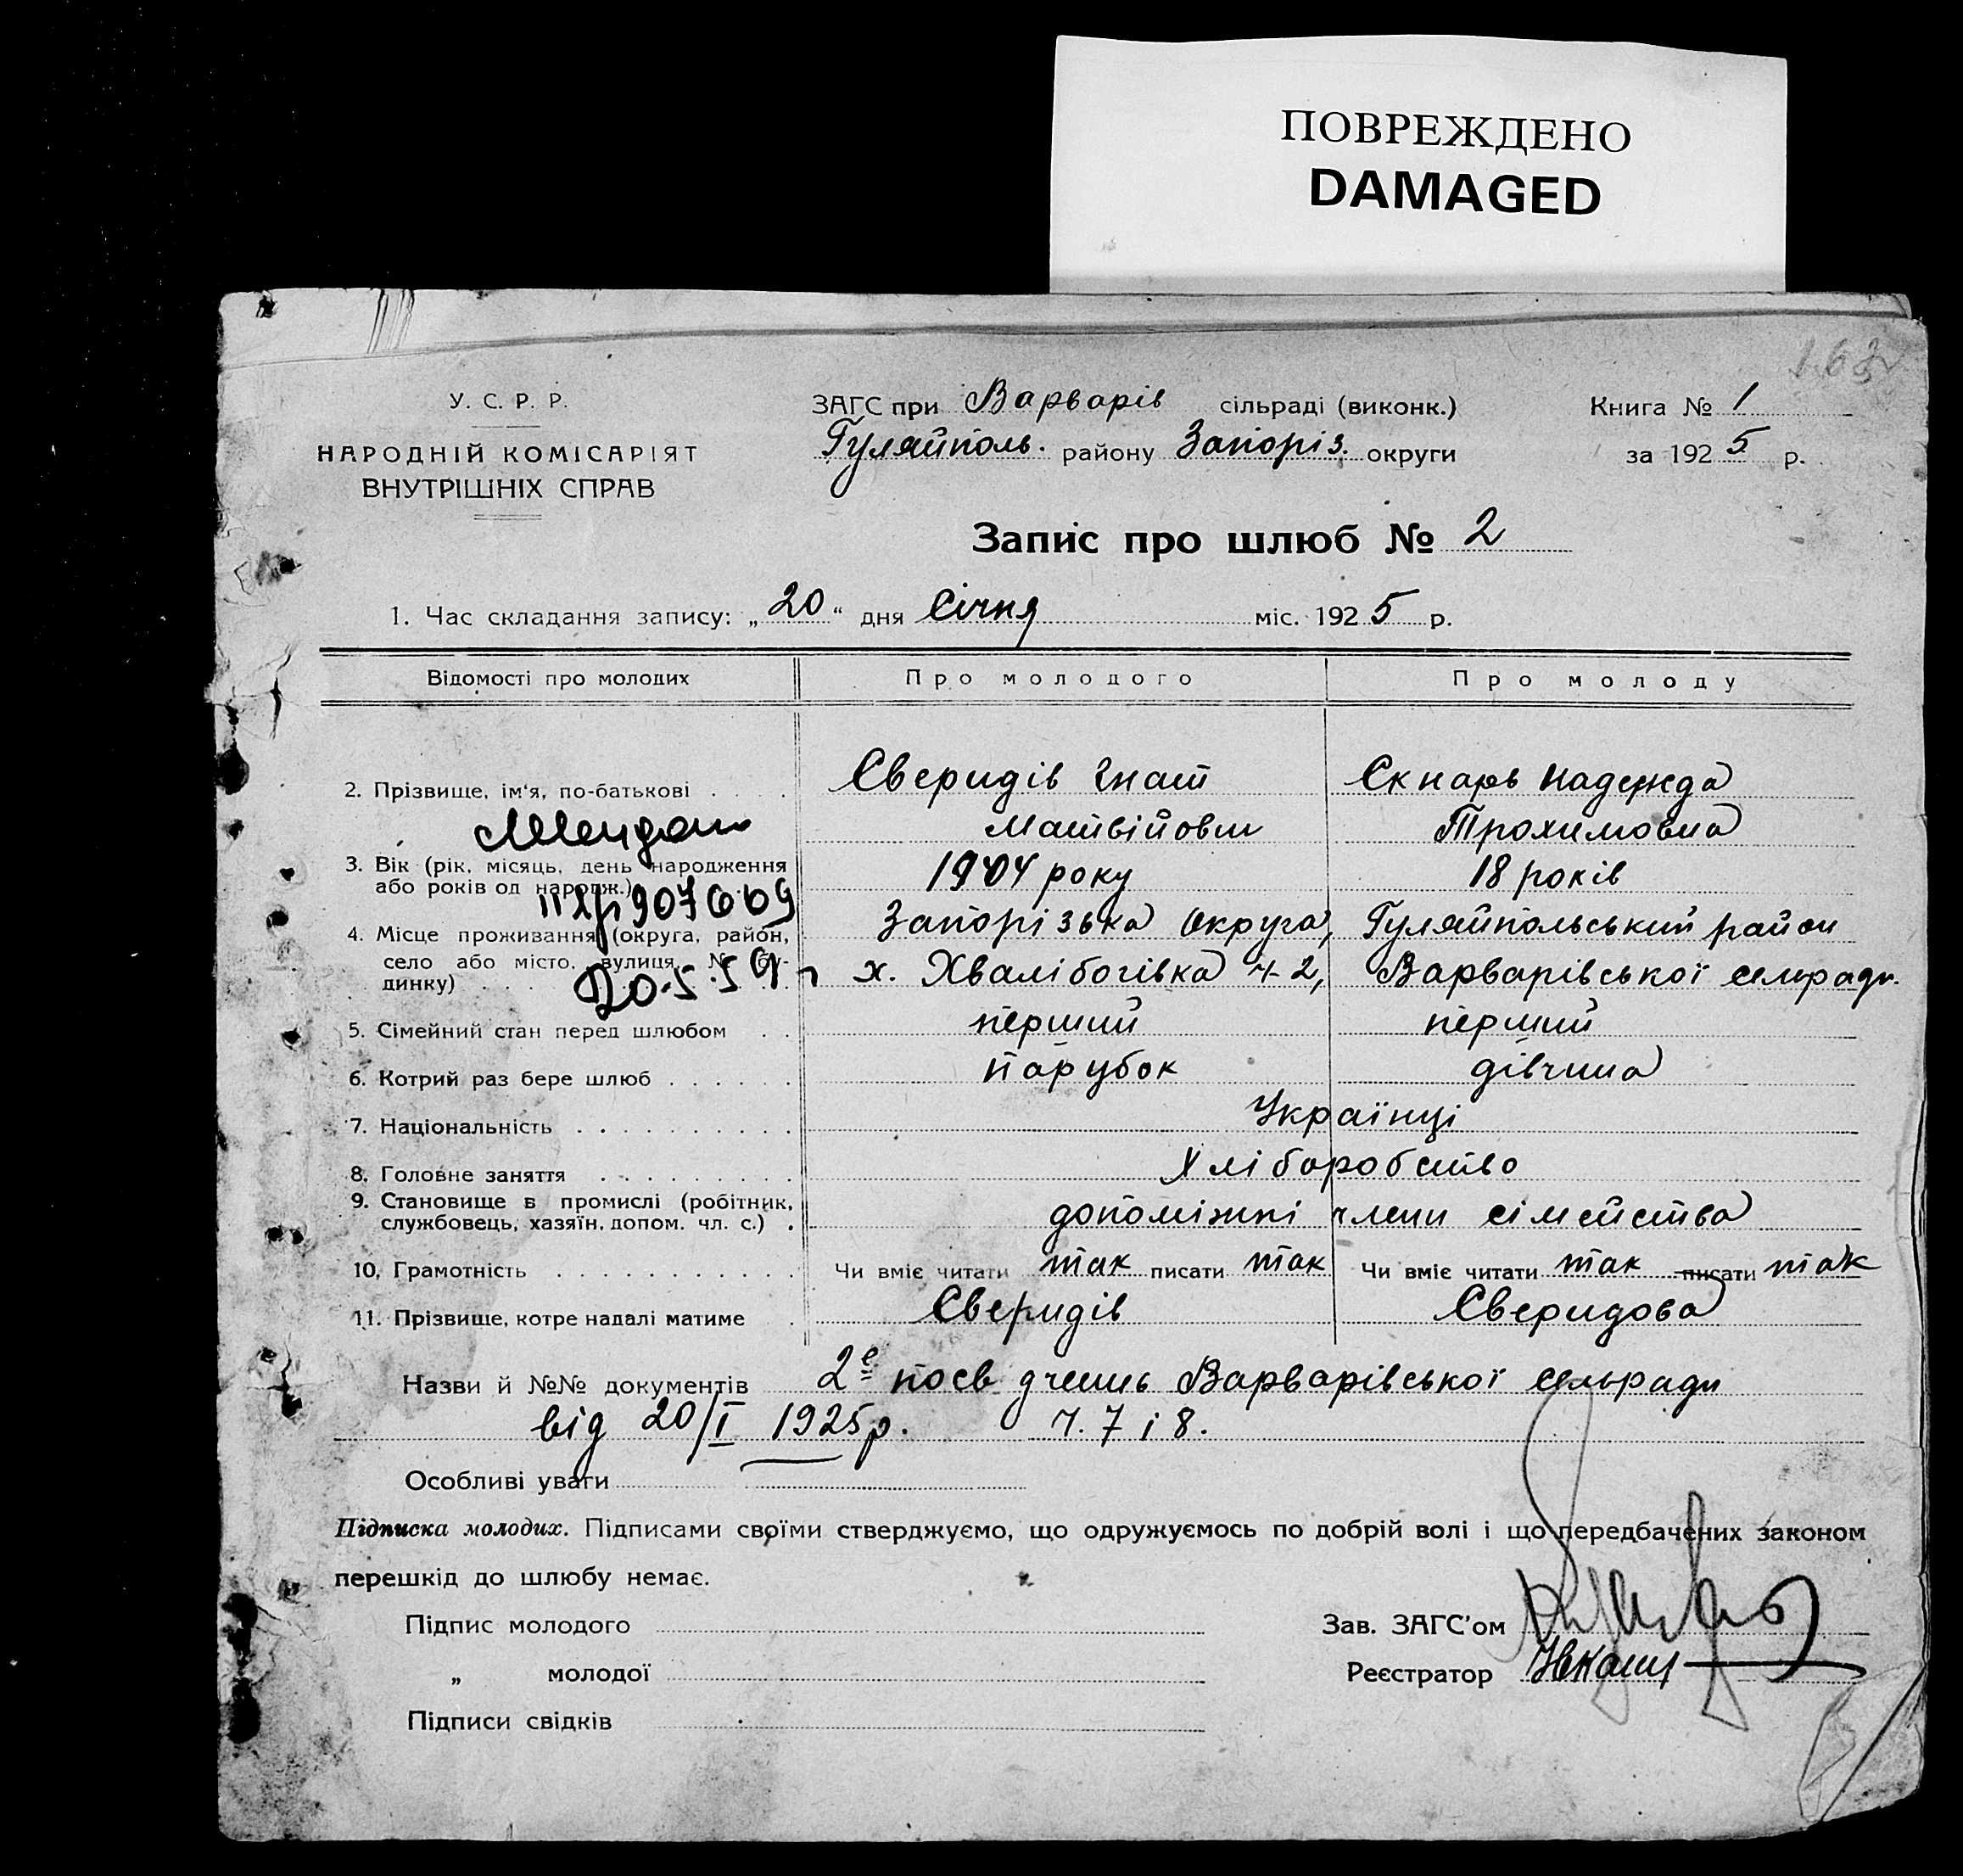 ПОВРЕЖДЕНО
DAMAGED
У. С. Р. Р.
НАРОДНІЙ КОМІСАРІЯТ
ВНУТРІШНІХ СПРАВ
ЗАГС при Варварів сільраді (виконк.)
Гуляйполь. району Запоріз. округи
Книга № 1
за 1925 р.
Запис про шлюб № 2
1. Час складання запису: „20“ дня Січня міс. 1925 р.
Відомості про молодих Про молодого Про молоду
2. Прізвище, ім'я, по-батькові Сверидів Гнат Скнарь Надежда
Матвійович Трохимовна
3. Вік (рік, місяць, день народження 1904 року 18 років
або років од народж.)
4. Місце проживання (округа, район, Запорізька округа, Гуляйпольський район
село або місто, вулиця, № бу- х. Хвалібогівка ч 2, Варварівської сельради.
динку)
20.5.59
5. Сімейний стан перед шлюбом перший перший
6. Котрий раз бере шлюб парубок дівчина
7. Національність Українці
8. Головне заняття Хліборобство
9. Становище в промислі (робітник,
службовець, хазяїн, допом. чл. с.) допоміжні члени сімейства
10. Грамотність Чи вміє читати так писати так Чи вміє читати так писати так
11. Прізвище, котре надалі матиме Сверидів Сверидова
Назви й №№ документів 2е посв дчень Варварівської сельради
від 20/I 1925р. ч. 7 і 8.
Особливі уваги
Підписка молодих. Підписами своїми стверджуємо, що одружуємось по добрій волі і що передбачених законом
перешкід до шлюбу немає.
Підпис молодого
„ молодої
Підписи свідків
Зав. ЗАГС'ом
Реєстратор